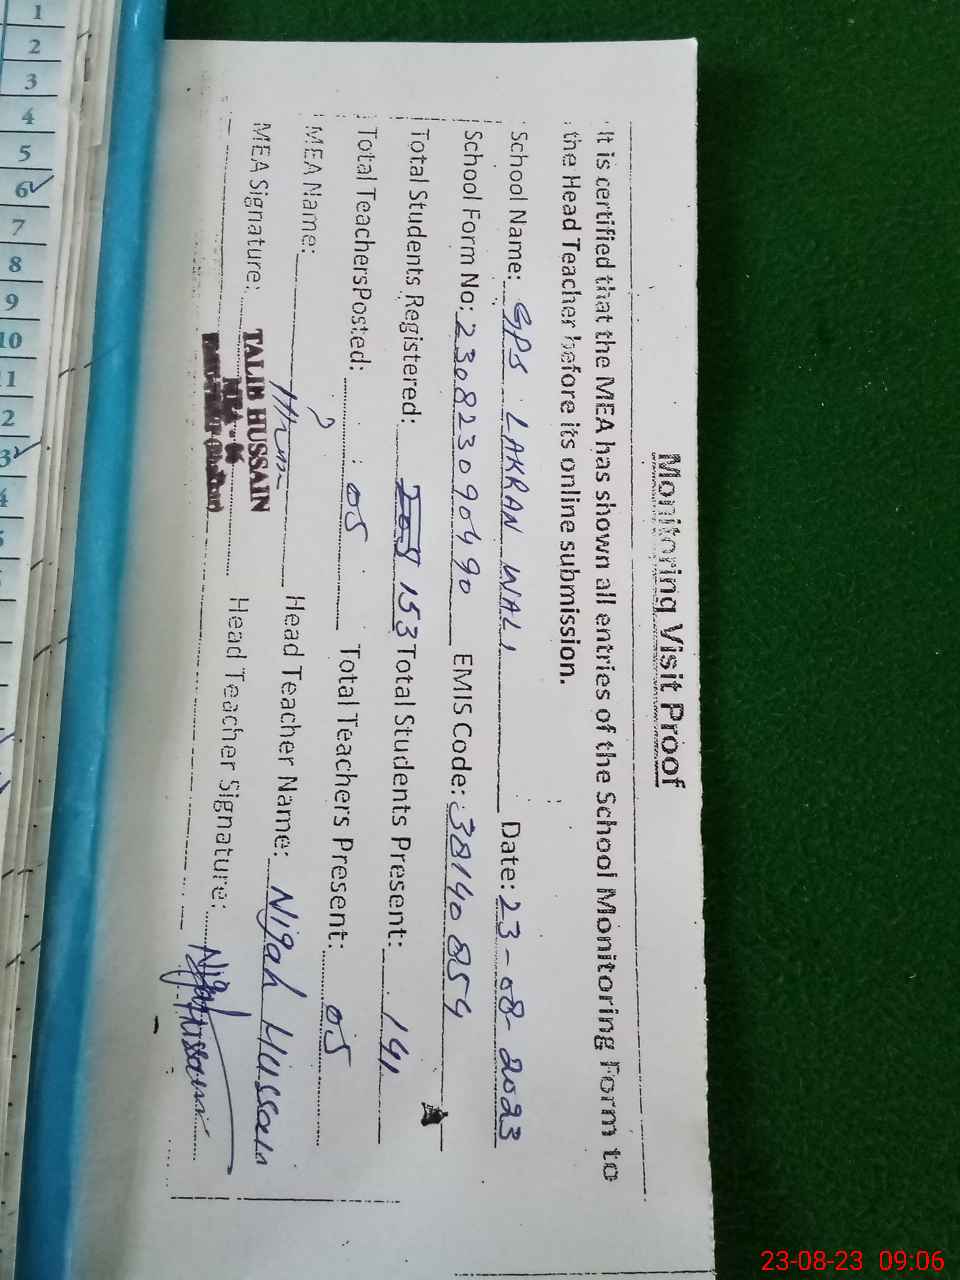 Monitoring Visit Proof
It is certified that the MEA has shown all entries of the School Monitoring Form to
the Head Teacher before its online submission.
School Name: GPS LAKRAN WALI Date: 23-08-2023
School Form No: 230823090490 EMIS Code: 38140859
Total Students Registered: 153 Total Students Present: 141
Total TeachersPosted: 05 Total Teachers Present: 05
MEA Name: Head Teacher Name: Nigah Hussain
MEA Signature: Head Teacher Signature: Nigah Hussain
TALIB HUSSAIN
MEA - 06
1
2
3
4
5
6
7
8
9
10
11
2
3
4
5
23-08-23 09:06